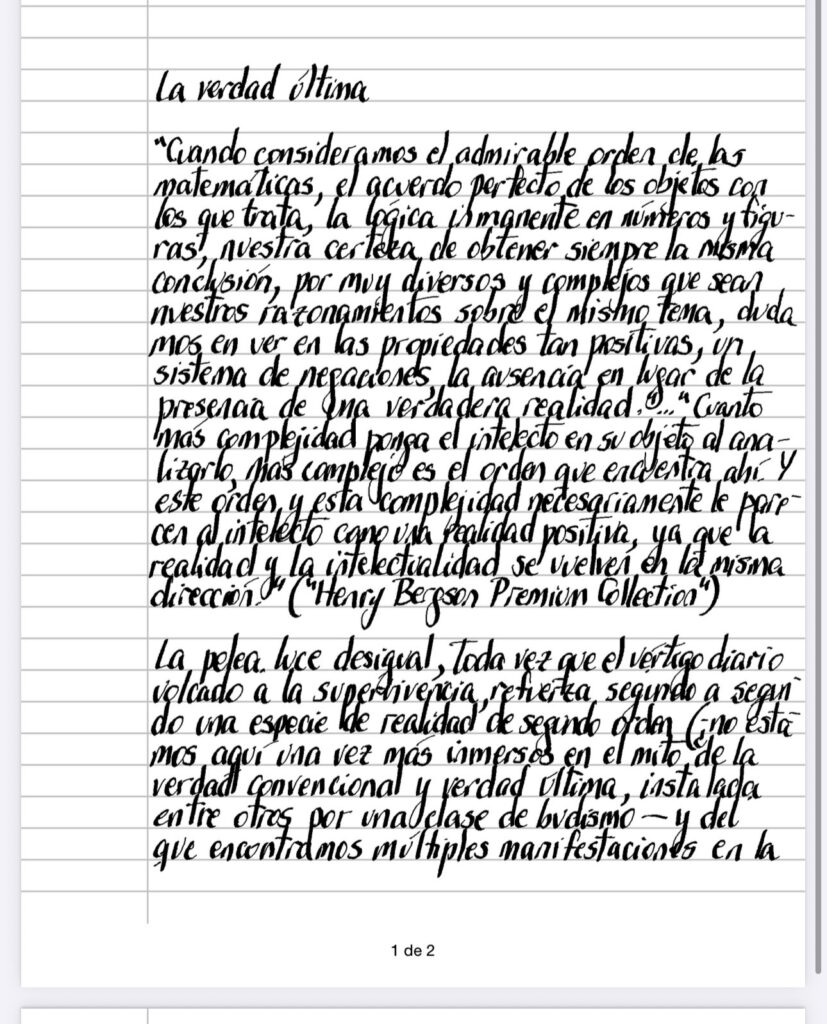 La verdad última
"Cuando consideramos el admirable orden de las
matemáticas, el acuerdo perfecto de los objetos con
los que trata, la lógica inmanente en números y figu-
ras, nuestra certeza de obtener siempre la misma
conclusión, por muy diversos y complejos que sean
nuestros razonamientos sobre el mismo tema, duda
mos en ver en las propiedades tan positivas, un
sistema de negaciones, la ausencia en lugar de la
presencia de una verdadera realidad."... "Cuanto
más complejidad ponga el intelecto en su objeto al ana-
lizarlo, más complejo es el orden que encuentra ahí. Y
este orden y esta complejidad necesariamente le pare-
cen al intelecto como una realidad positiva, ya que la
realidad y la intelectualidad se vuelven en la misma
dirección." ("Henry Bergson Premium Collection")
La pelea luce desigual, toda vez que el vértigo diario
volcado a la supervivencia, refuerza segundo a segun-
do una especie de realidad de segundo orden (¿no esta
mos aquí una vez más inmersos en el mito de la
verdad convencional y verdad última, instalada
entre otros por una clase de budismo — y del
que encontramos múltiples manifestaciones en la
1 de 2